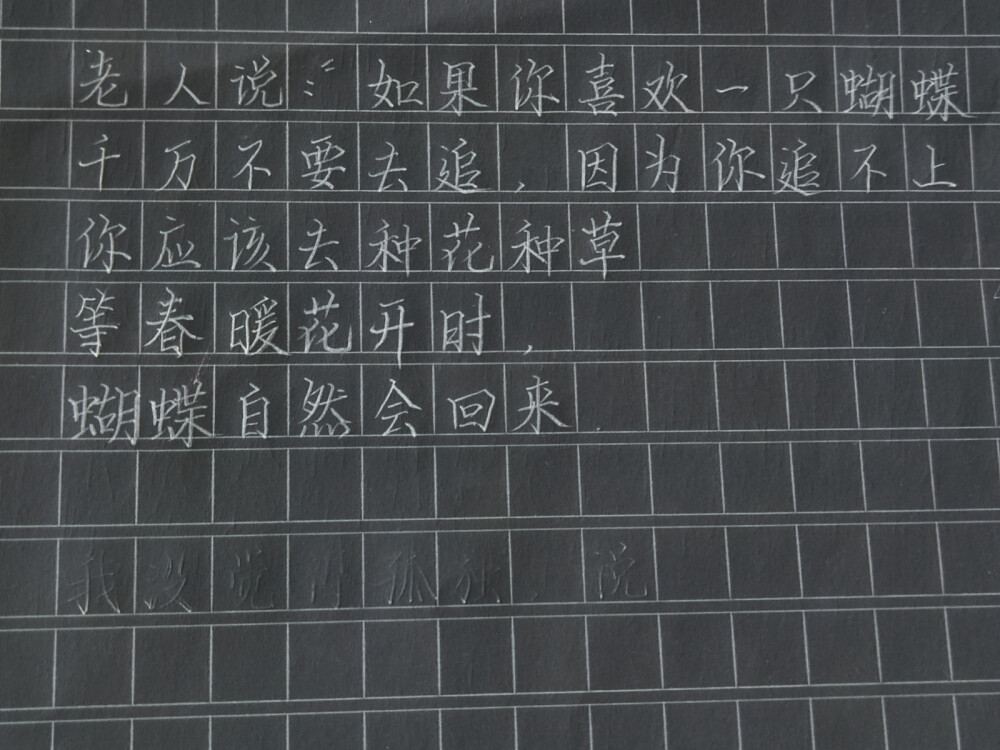 老人说:“如果你喜欢一只蝴蝶
千万不要去追,因为你追不上
你应该去种花种草
等春暖花开时,
蝴蝶自然会回来.
我没觉得孤独,说